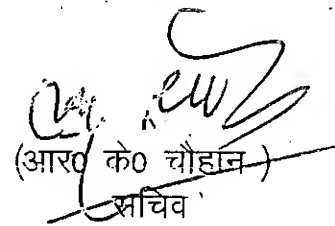 (आर० के० चौहान )
सचिव